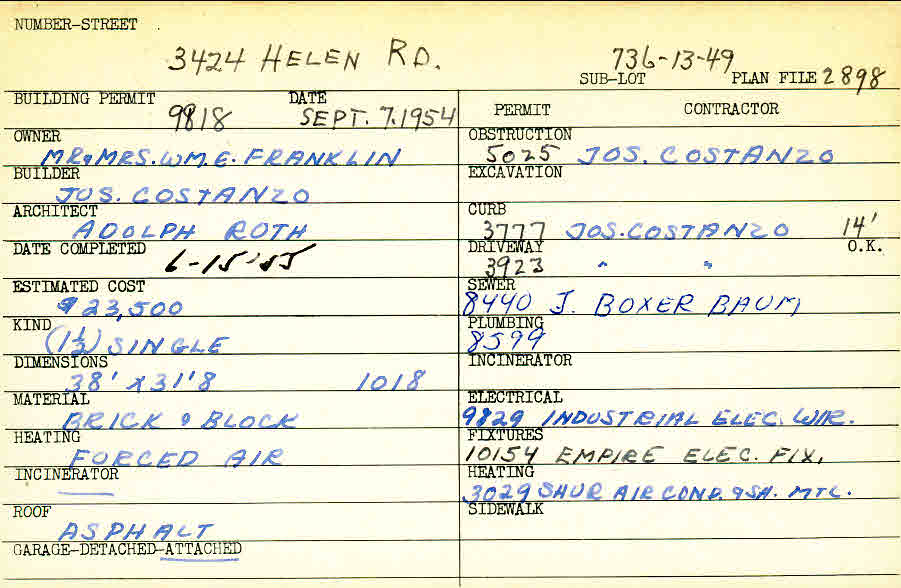 NUMBER-STREET
3424 HELEN RD. 736-13-49
SUB-LOT PLAN FILE 2898
BUILDING PERMIT DATE
9818 SEPT. 7. 1954
PERMIT CONTRACTOR
OWNER
MR & MRS. WM. E. FRANKLIN
OBSTRUCTION
5025 JOS. COSTANZO
BUILDER
JOS. COSTANZO
EXCAVATION
ARCHITECT
ADOLPH ROTH
CURB
3777 JOS. COSTANZO 14'
DATE COMPLETED
6-15'55
DRIVEWAY O.K.
3923 " "
ESTIMATED COST
$23,500
SEWER
8440 J. BOXER BAUM
KIND
(1½) SINGLE
PLUMBING
8599
DIMENSIONS
38' x 31'8 1018
INCINERATOR
MATERIAL
BRICK & BLOCK
ELECTRICAL
9829 INDUSTRIAL ELEC. WIR.
HEATING
FORCED AIR
FIXTURES
10154 EMPIRE ELEC. FIX.
INCINERATOR
HEATING
3029 SHUR AIR COND. & SH. MTL.
ROOF
ASPHALT
SIDEWALK
GARAGE-DETACHED-ATTACHED